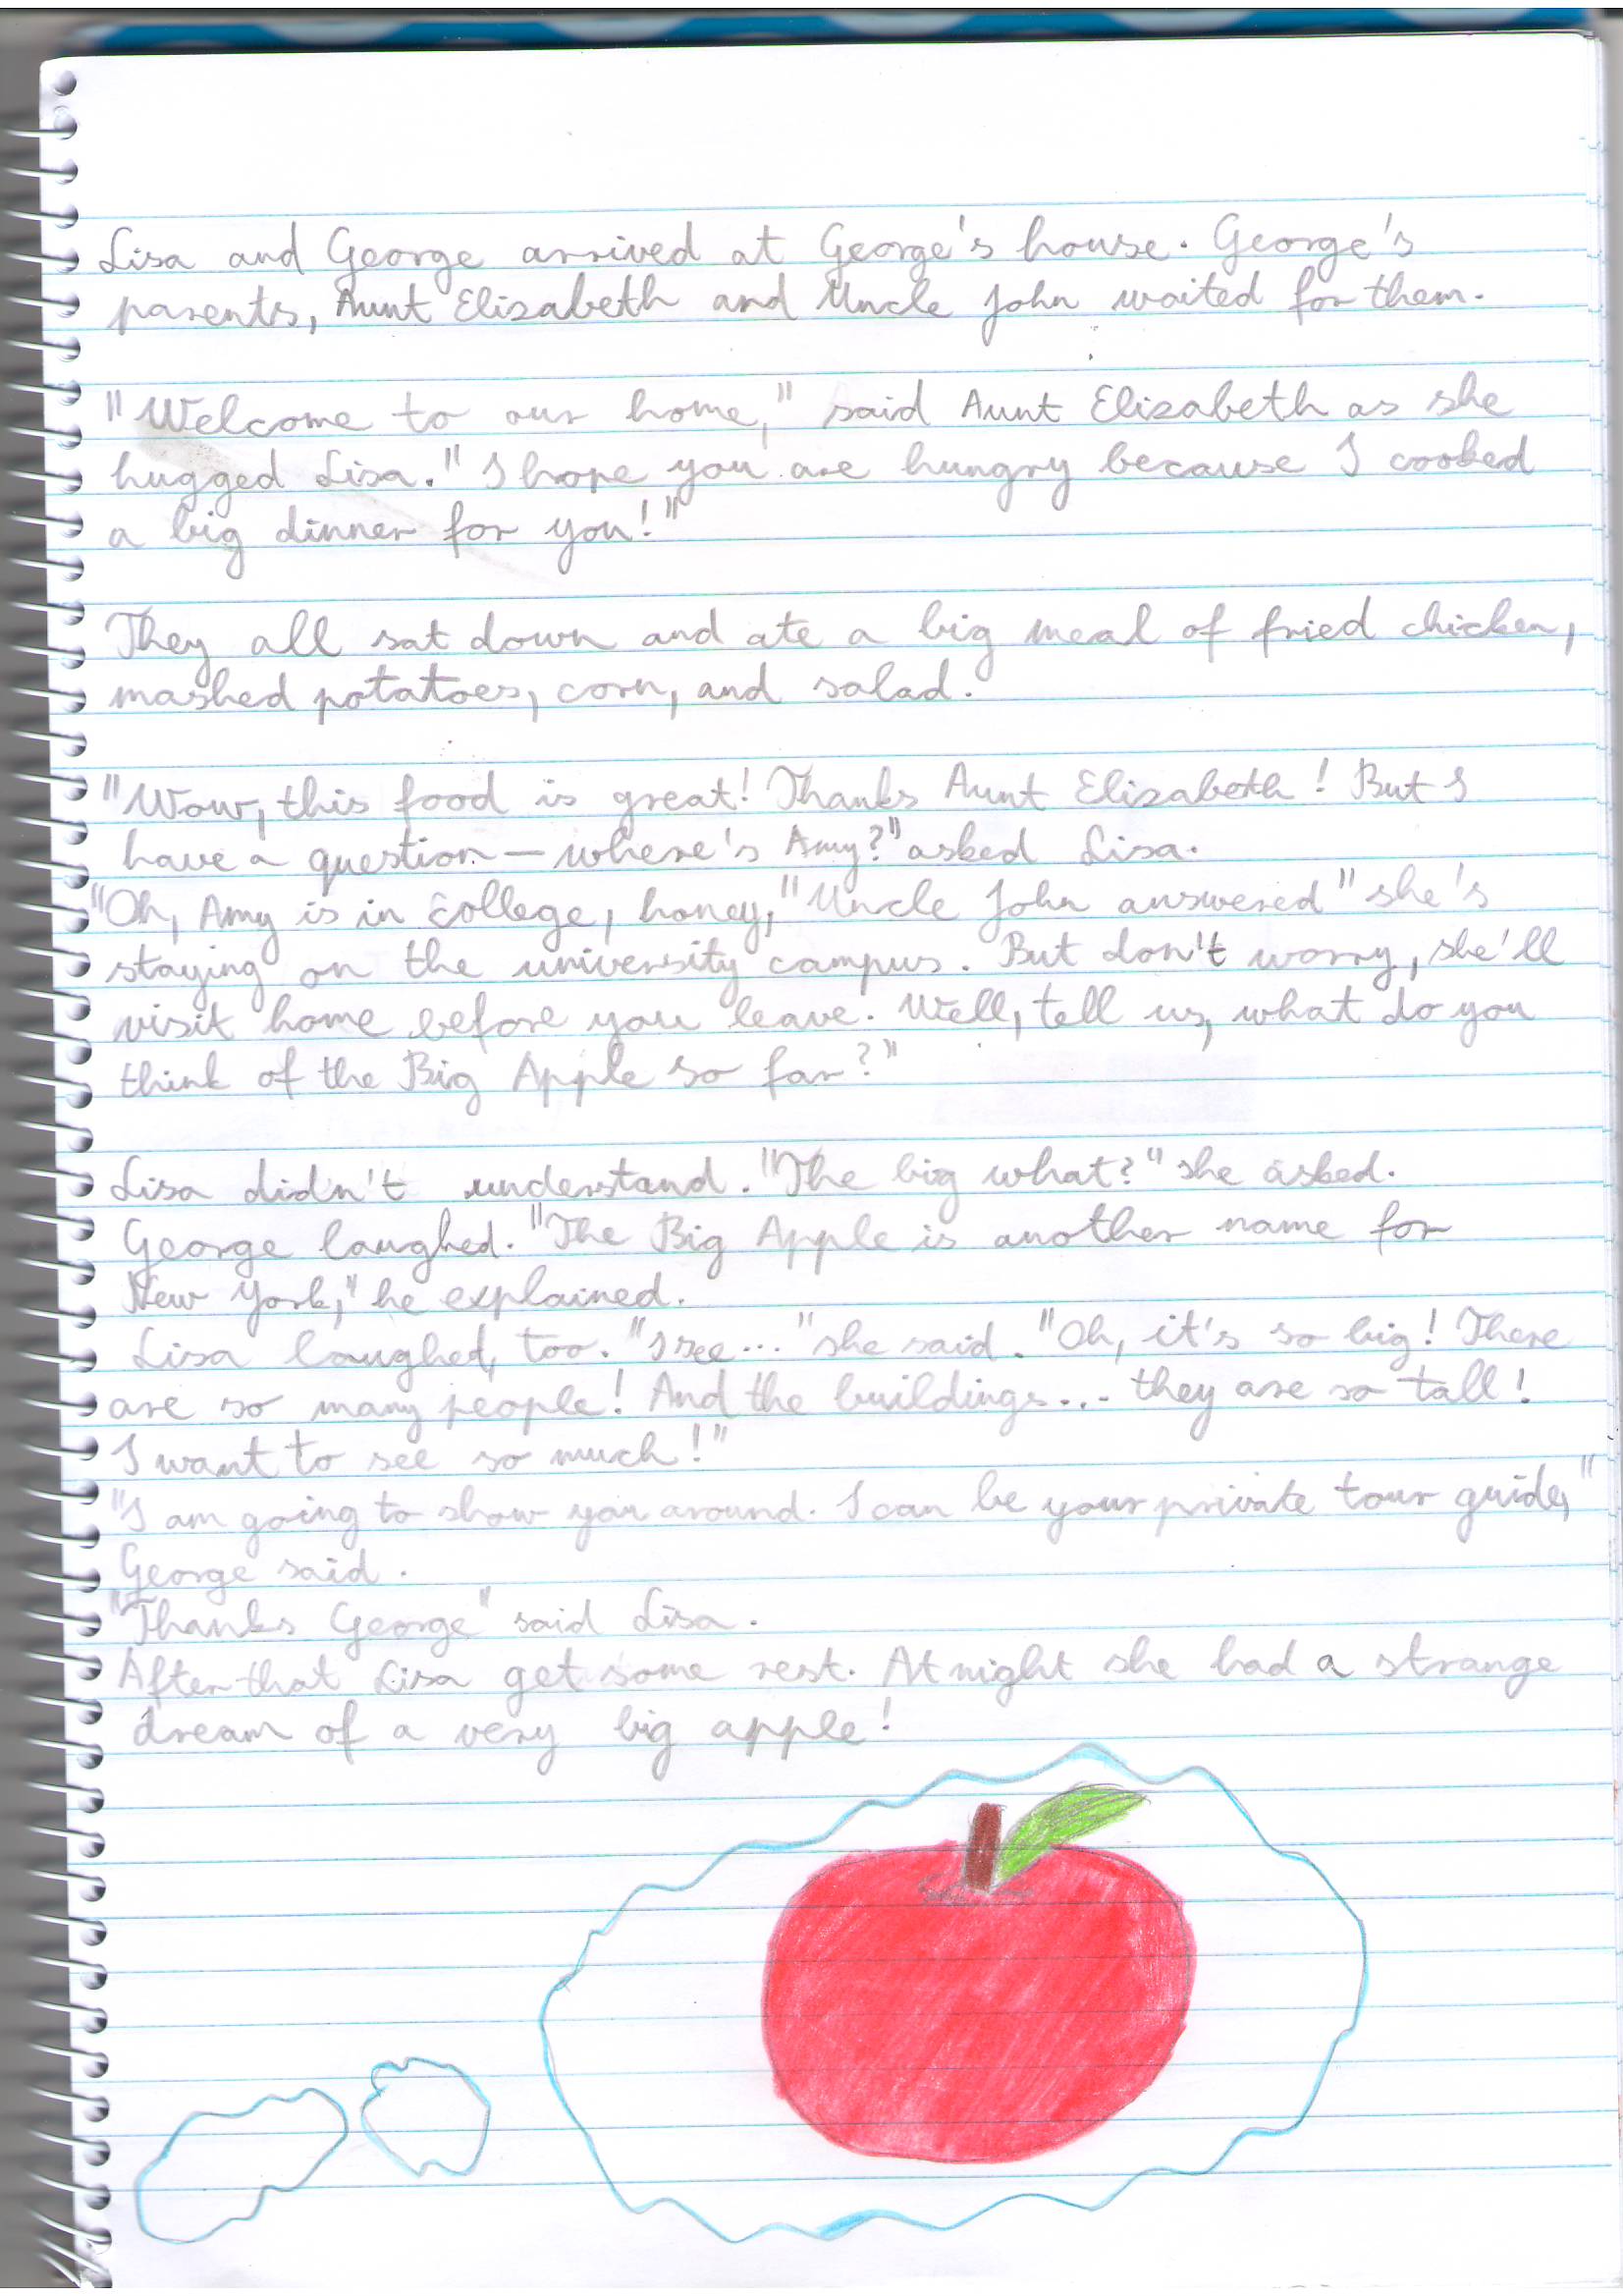 Lisa and George arrived at George's house. George's
parents, Aunt Elizabeth and Uncle John waited for them.
"Welcome to our home," said Aunt Elizabeth as she
hugged Lisa. "I hope you are hungry because I cooked
a big dinner for you!"
They all sat down and ate a big meal of fried chicken,
mashed potatoes, corn, and salad.
"Wow, this food is great! Thanks Aunt Elizabeth! But I
have a question – where's Amy?" asked Lisa.
"Oh, Amy is in college, honey," Uncle John answered "she's
staying on the university campus. But don't worry, she'll
visit home before you leave. Well, tell us, what do you
think of the Big Apple so far?"
Lisa didn't understand. "The big what?" she asked.
George laughed. "The Big Apple is another name for
New York," he explained.
Lisa laughed, too. "I see..." she said. "Oh, it's so big! There
are so many people! And the buildings... they are so tall!
I want to see so much!"
"I am going to show you around. I can be your private tour guide,"
George said.
"Thanks George" said Lisa.
After that Lisa get some rest. At night she had a strange
dream of a very big apple!